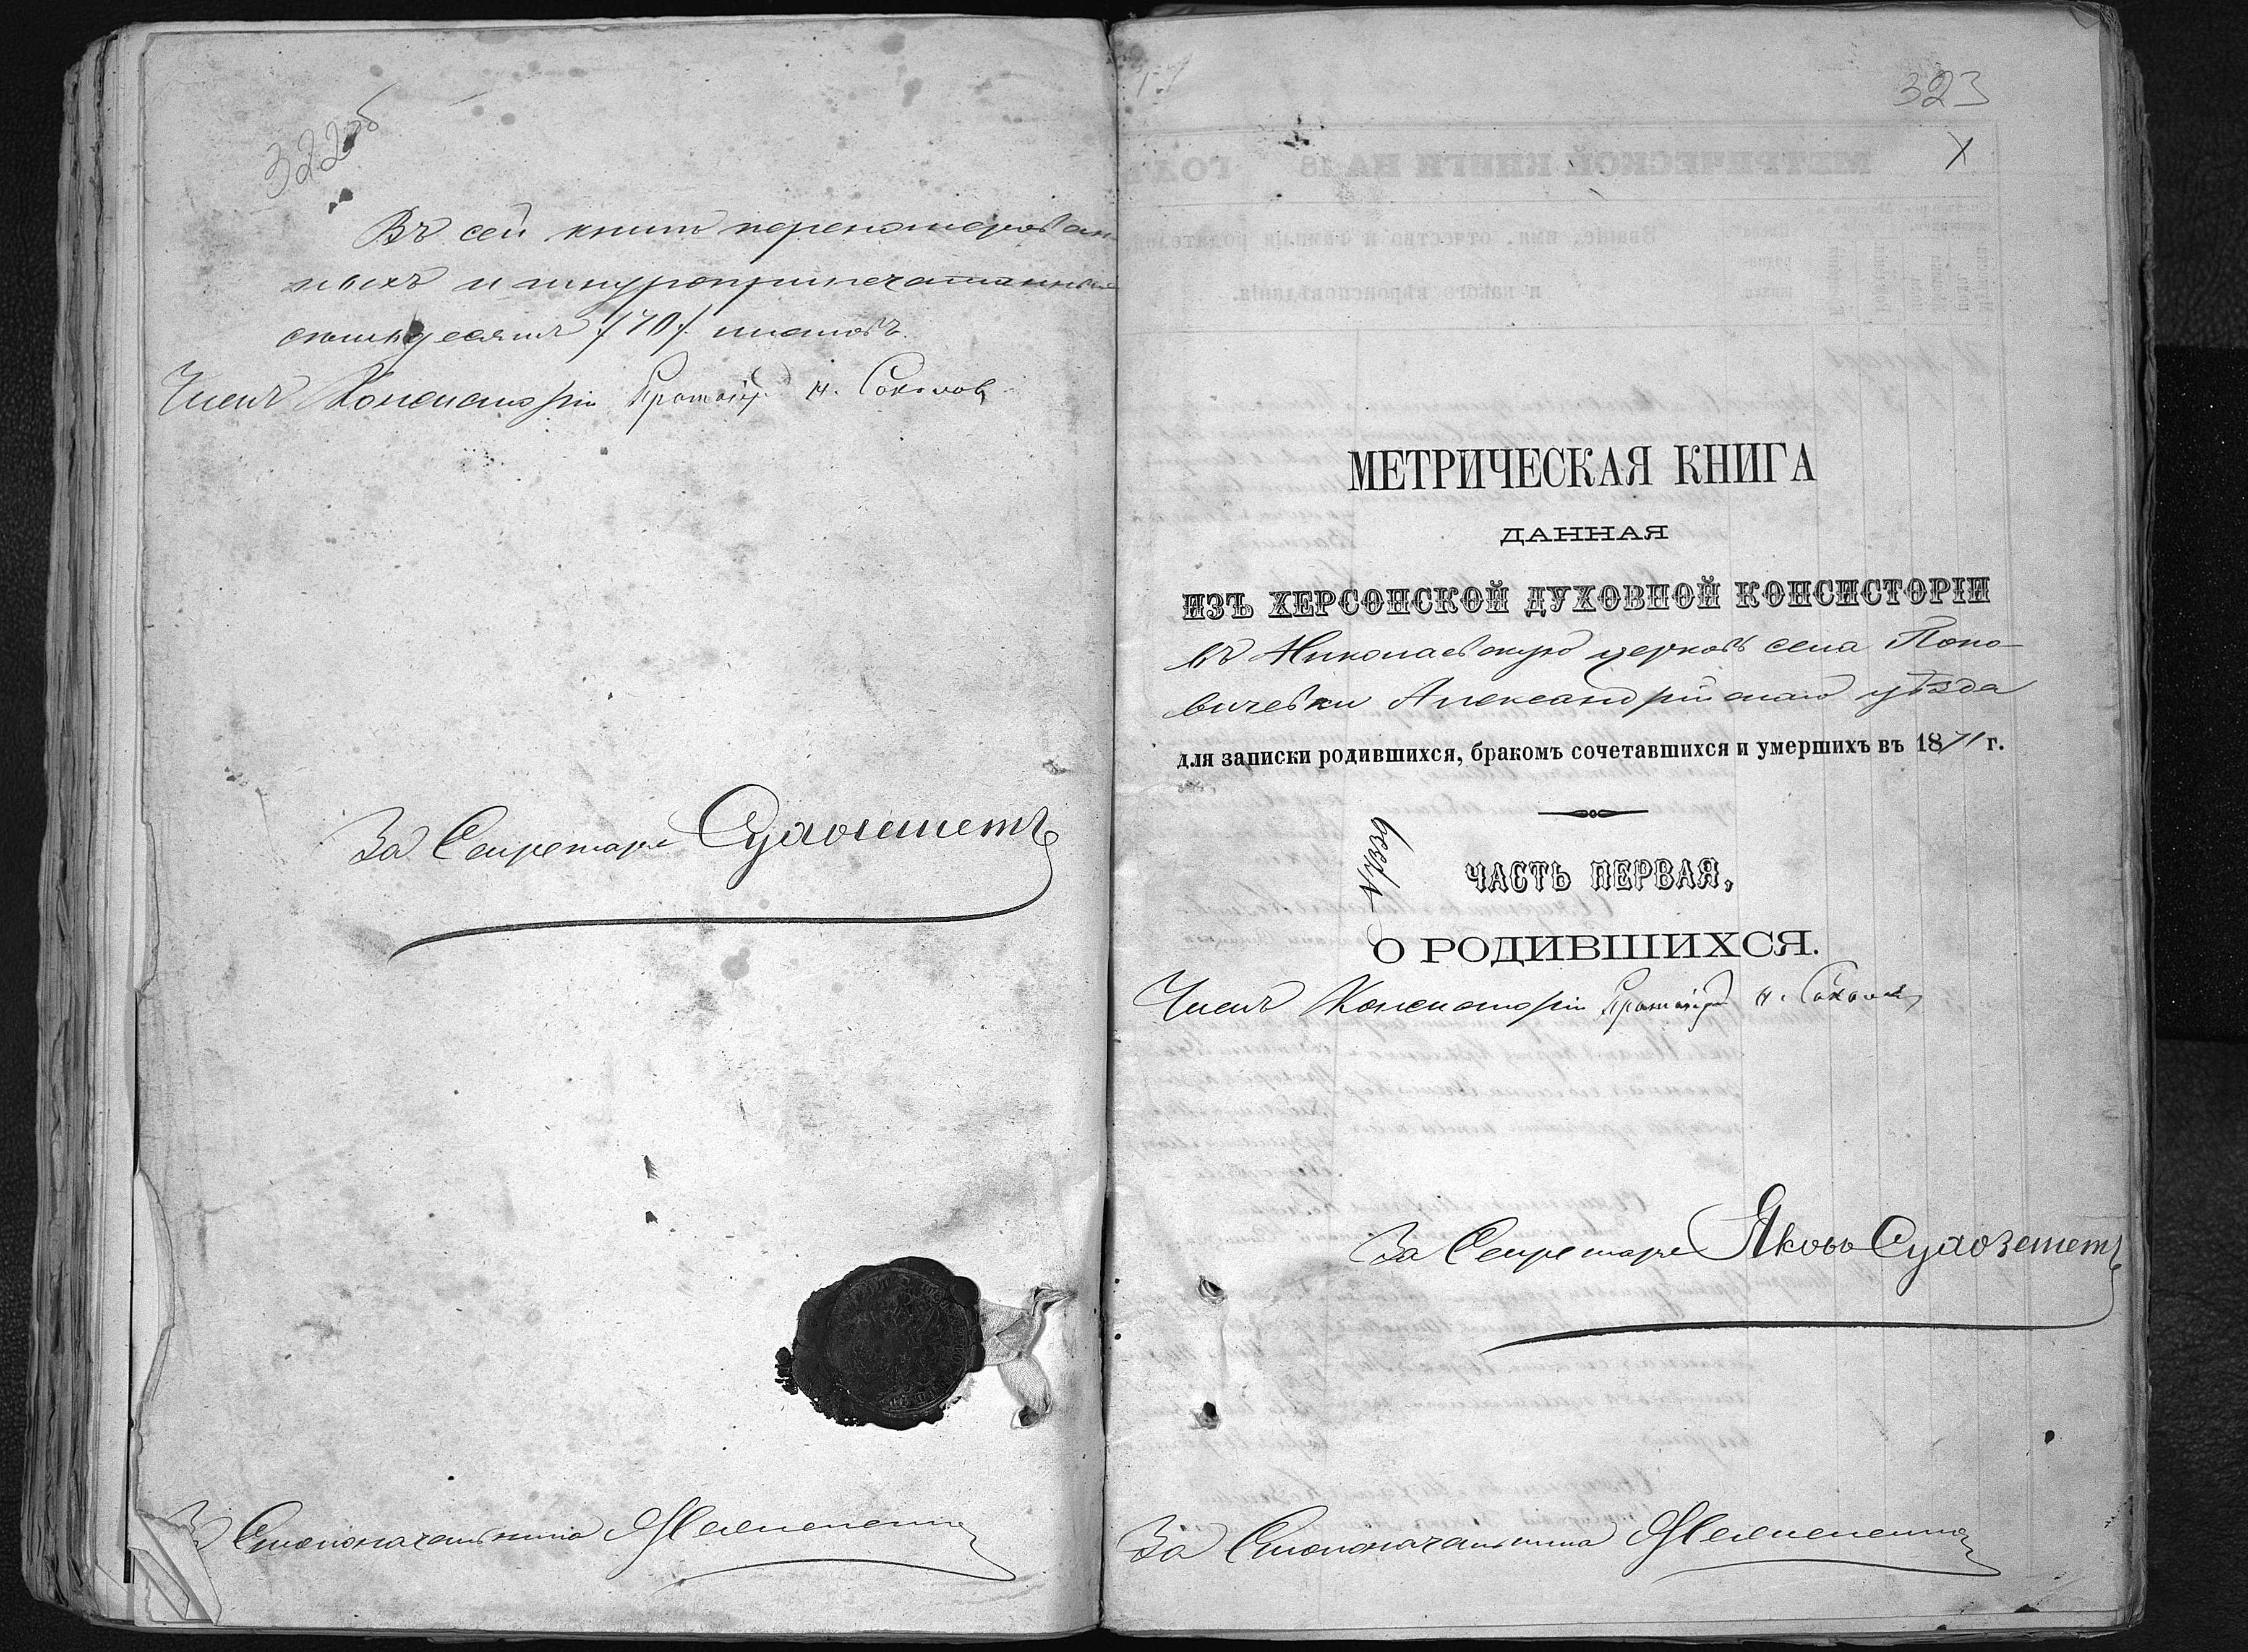 322об
Въ сей книги перенумерован-
ныхъ и шнуроприпечатанныхъ
семьдесятъ /70/. листовъ.
Членъ Консисторіи Протоіер. Н. Соколовъ
За Секретаря
За Столоначальника
323
X
МЕТРИЧЕСКАЯ КНИГА
ДАННАЯ
ИЗЪ ХЕРСОНСКОЙ ДУХОВНОЙ КОНСИСТОРІИ
въ Николаевскую церковь села Попо-
вичевки Александрійскаго уѣзда
для записки родившихся, бракомъ сочетавшихся и умершихъ въ 1871 г.
ЧАСТЬ ПЕРВАЯ,
О РОДИВШИХСЯ.
Членъ Консисторіи Протоіер. Н. Соколовъ
За Секретаря Яковъ
За Столоначальника